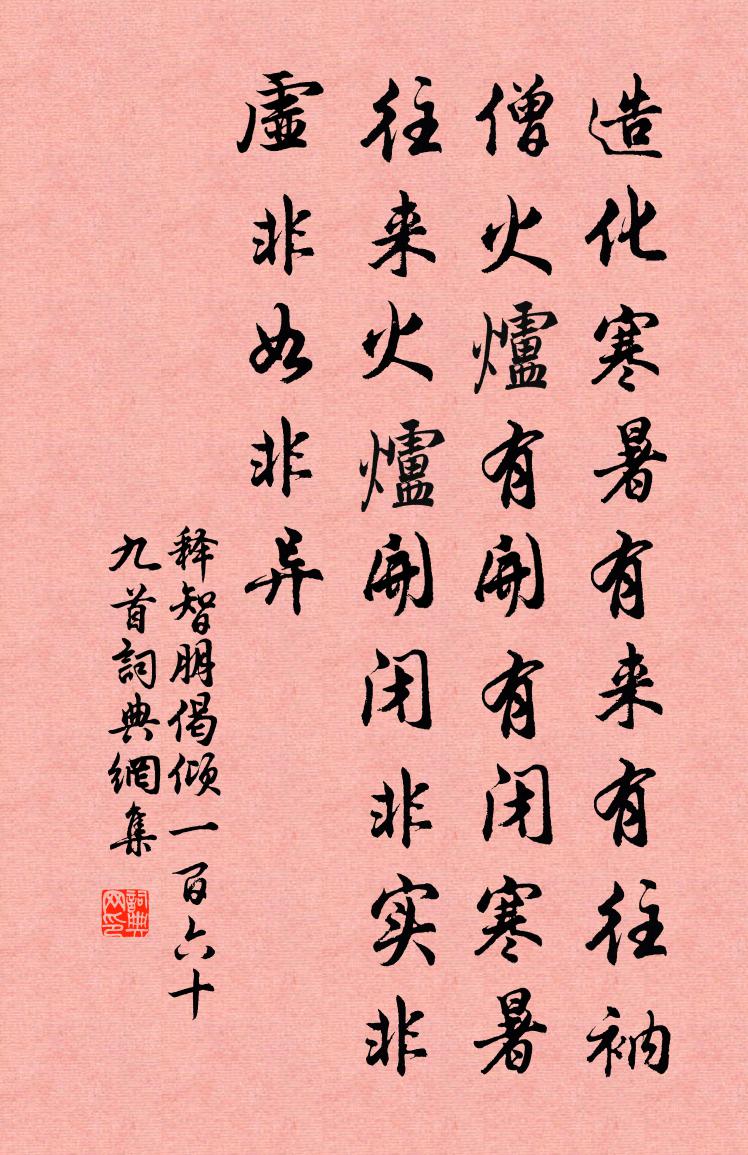 造化寒暑有来有往衲
僧火爐有開有闭寒暑
往来火爐開闭非实非
虛非如非异
释智朋偈倾一百六十
九首詞典網集
詞典网印